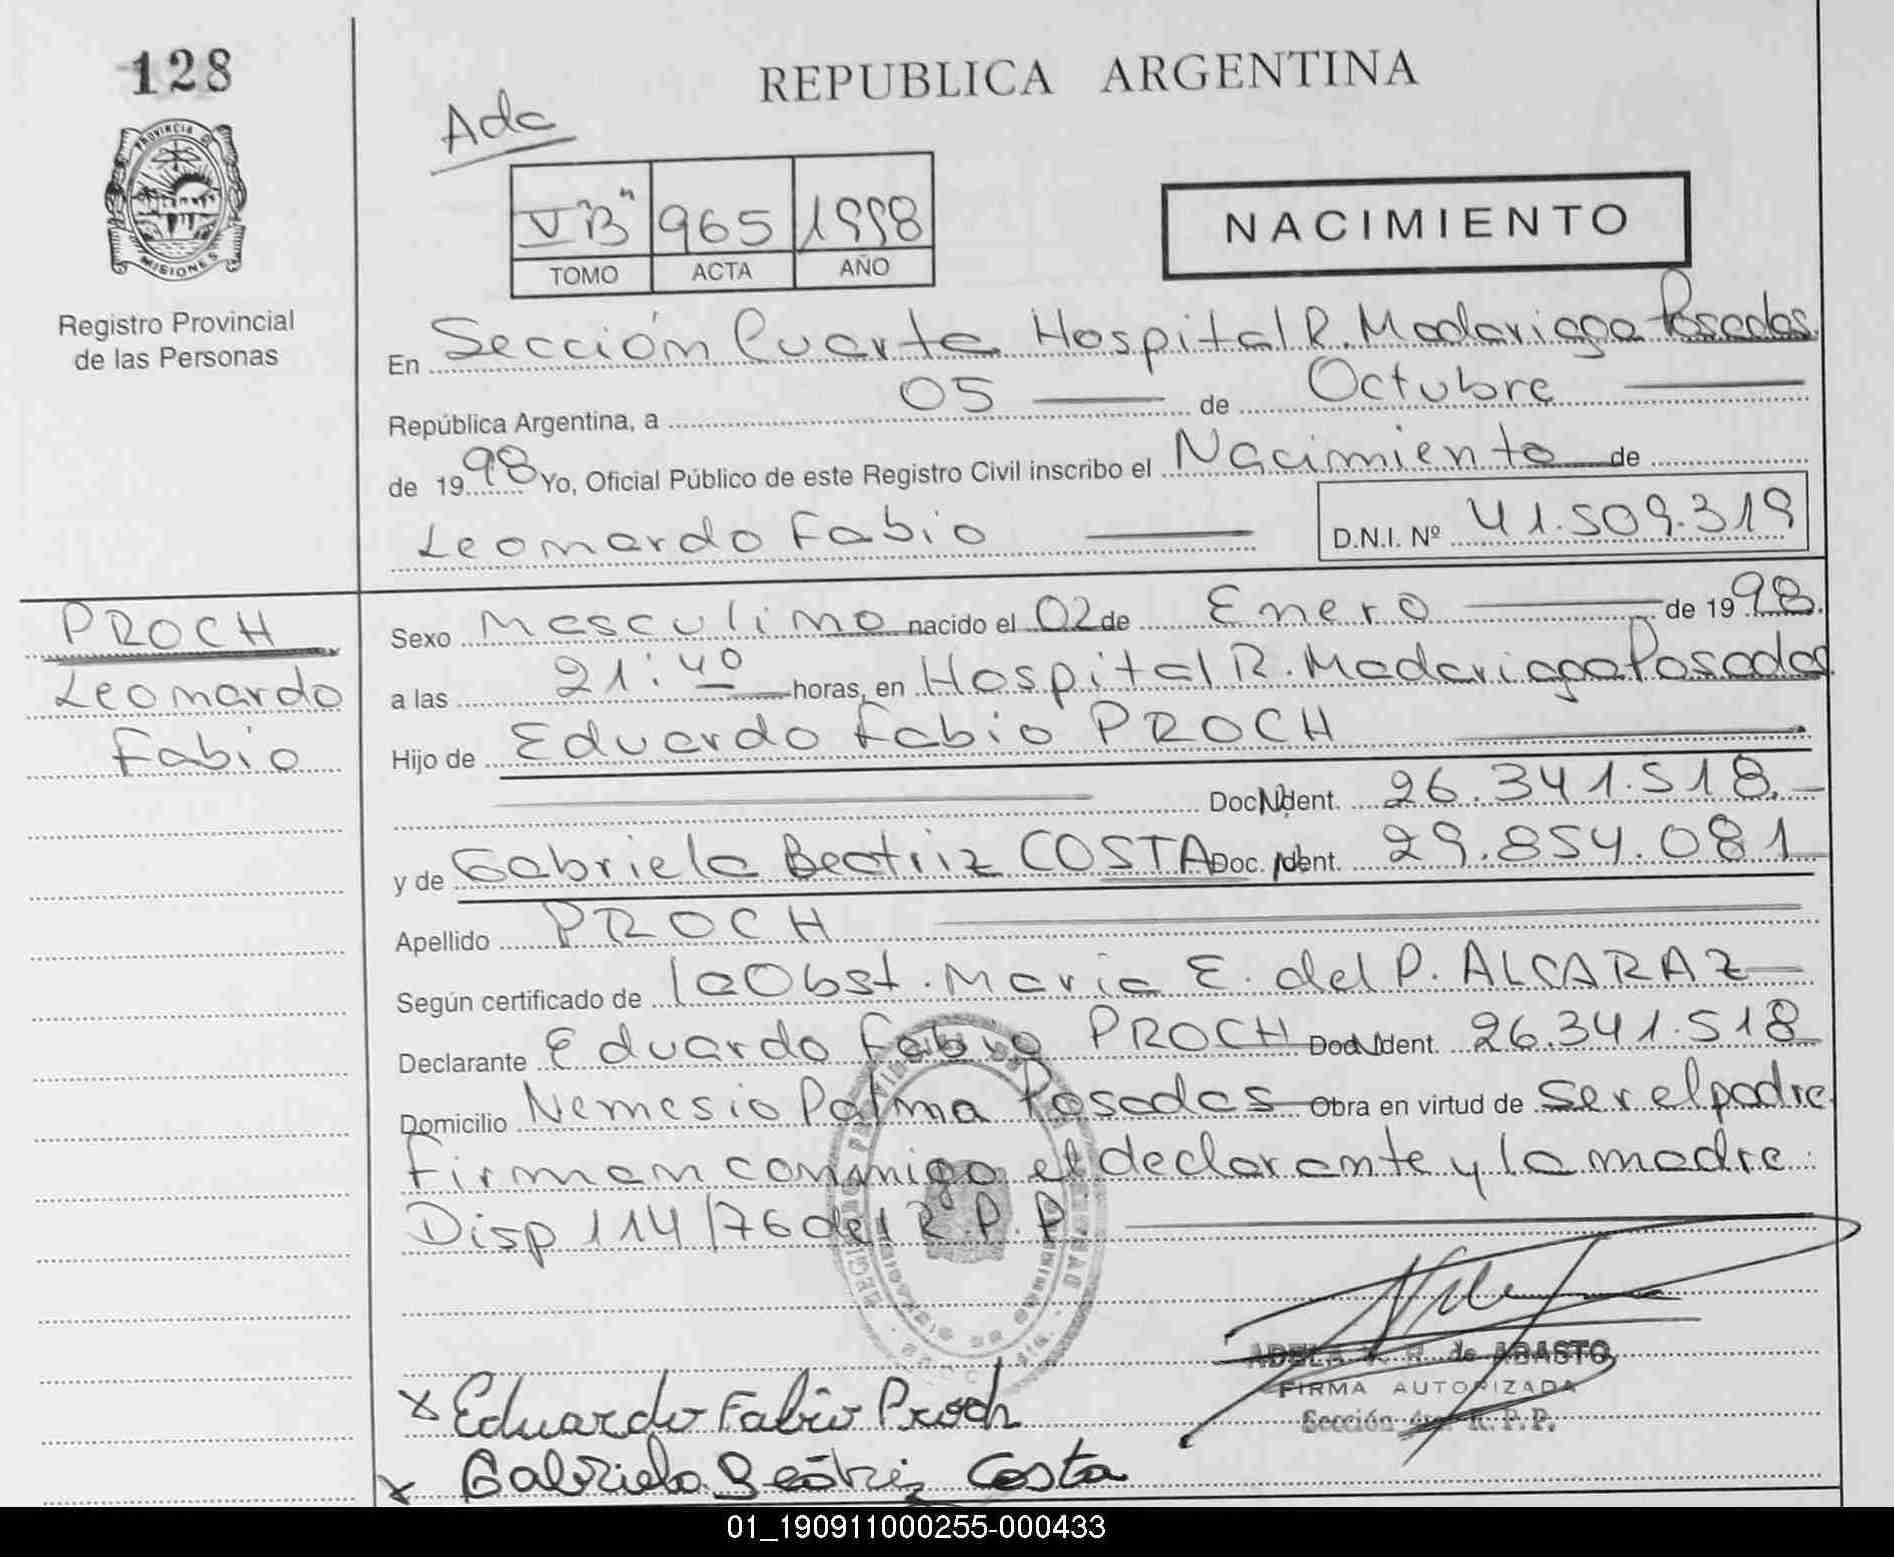 128
REPUBLICA ARGENTINA
Ada
PROVINCIA DE
MISIONES
V "B" 965 1998
TOMO ACTA AÑO
NACIMIENTO
Registro Provincial
de las Personas
En Sección Cuarta Hospital R. Madariaga Posadas.
República Argentina, a 05 de Octubre
de 1998 Yo, Oficial Público de este Registro Civil inscribo el Nacimiento de
Leonardo Fabio
D.N.I. Nº 41.509.319
PROCH
Leonardo
Fabio
Sexo Masculino nacido el 02 de Enero de 1998.
a las 21:40 horas, en Hospital R. Madariaga Posadas
Hijo de Eduardo Fabio PROCH
Doc. Ident. 26.341.518.-
y de Gabriela Beatriz COSTA Doc. Ident. 29.854.081
Apellido PROCH
Según certificado de la Obst. Maria E. del P. ALCARAZ
Declarante Eduardo Fabio PROCH Doc. Ident. 26.341.518
Domicilio Nemesio Palma Posadas Obra en virtud de ser el padre
Firman conmigo el declarante y la madre.
Disp 114/76 del R.P.P.
ADELA de ABASTO
FIRMA AUTORIZADA
Sección R.P.P.
x Eduardo Fabio Proch
x Gabriela Beatriz Costa
01_190911000255-000433